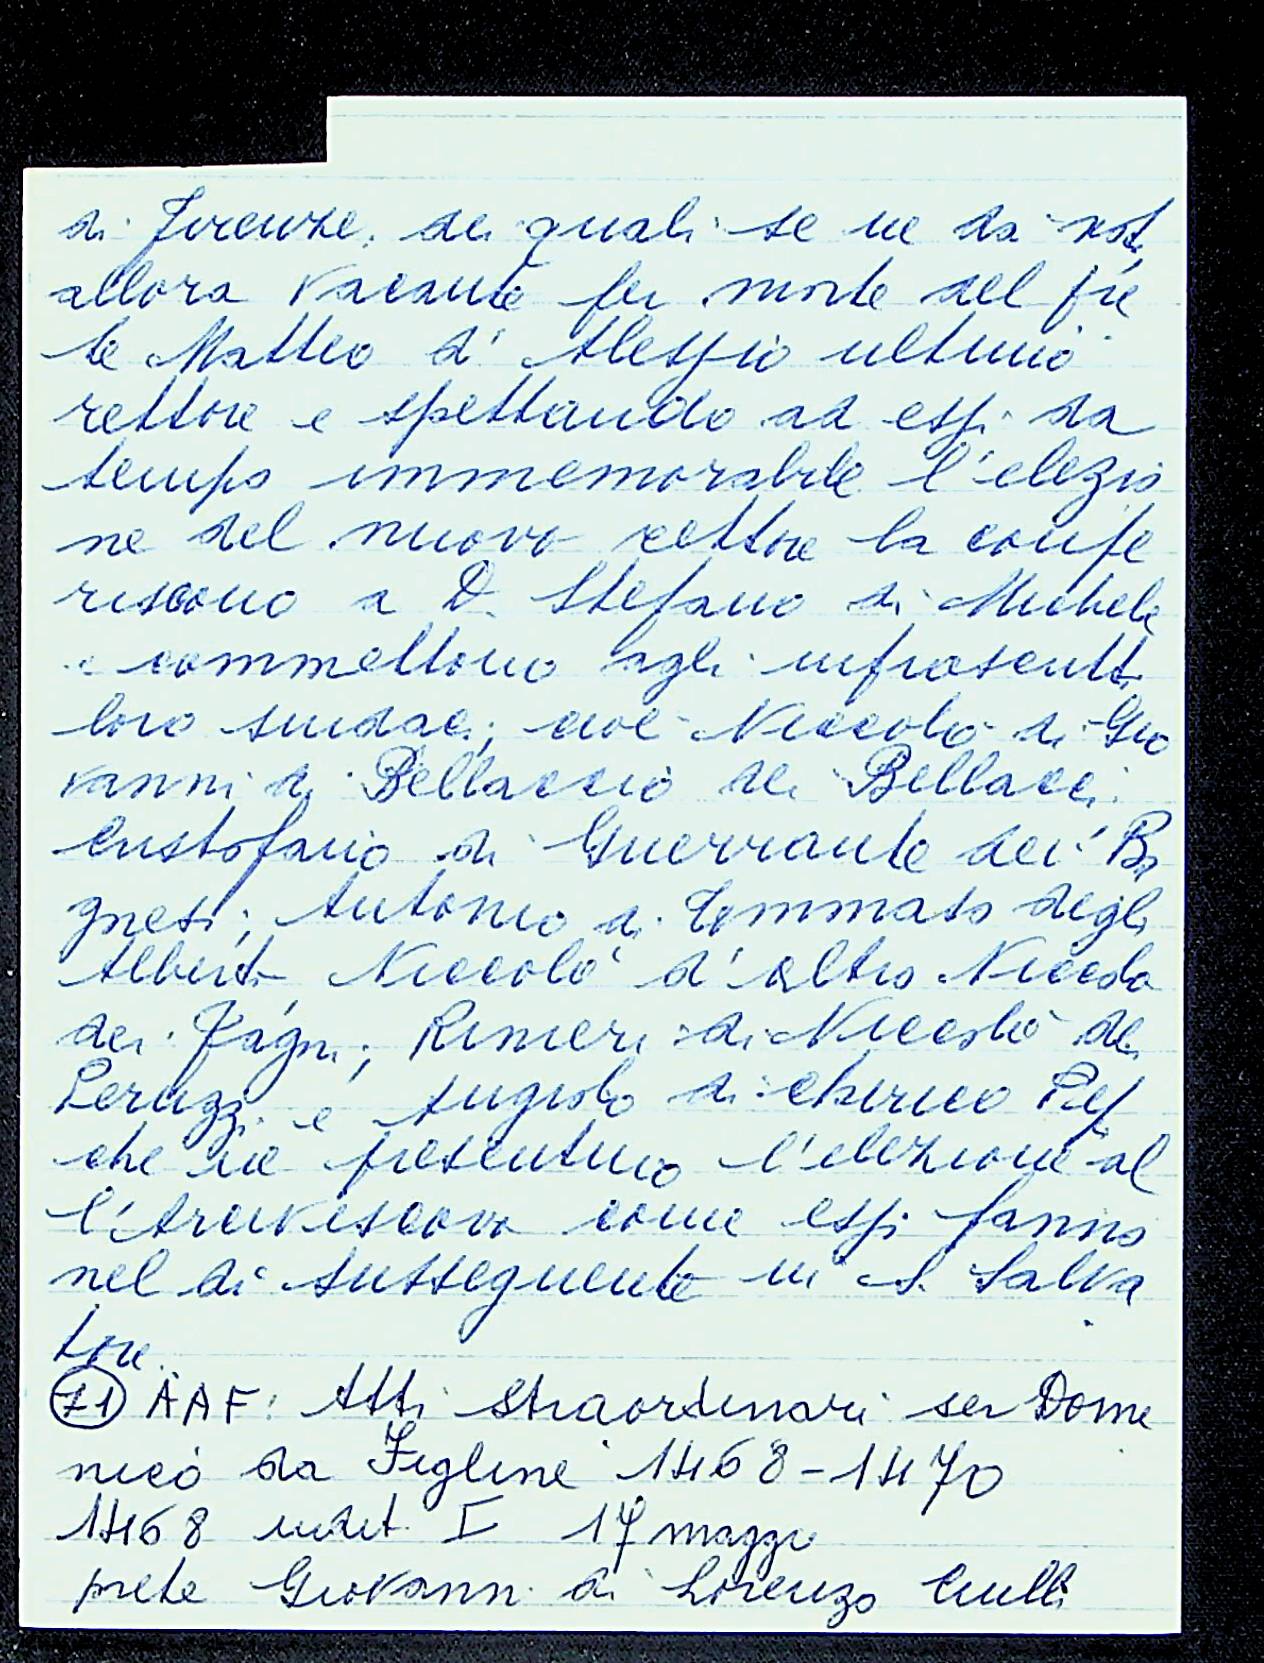 di Firenze, dei quali se ne da not.
allora vacante per morte del pre
te Matteo d'Alessio ultimo
rettore e spettando ad essi da
tempo immemorabile l'elezio
ne del nuovo rettore la confe
riscono a D. Stefano di Michele
e commettono agli infrascritti
loro sindaci; cioè Niccolò di Gio
vanni di Bellaccio dei Bellacci
Cristofano di Guerriante dei Ba
gnesi; Antonio di Tommaso degli
Alberti Niccolò d'altro Niccolò
dei Fagni; Rinieri di Niccolò dei
Peruzzi e Angiolo di Chirico
che ne presentino l'elezione al
l'Arcivescovo come essi fanno
nel dì susseguente in S. Salva
tore.
71 AAF: Atti straordinari ser Dome
nico da Figline 1468-1470
1468 indict. I 17 maggio
prete Giovanni di Lorenzo Ciulli